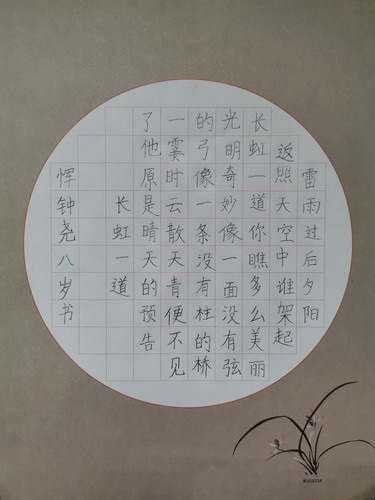 雷雨过后夕阳
返照天空中谁架起
长虹一道你瞧多么美丽
光明奇妙像一面没有弦
的弓像一条没有柱的桥
一霎时云散天青便不见
了他原是晴天的预告
长虹一道
恽钟尧八岁书